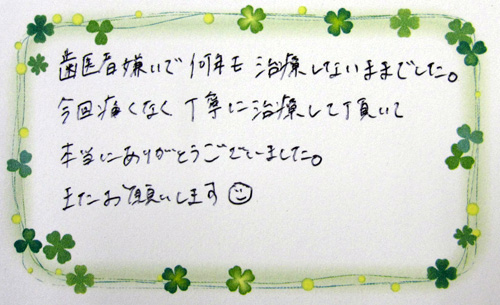 歯医者嫌いで何年も治療しないままでした。
今回痛くなく丁寧に治療して頂いて
本当にありがとうございました。
またお願いします☺